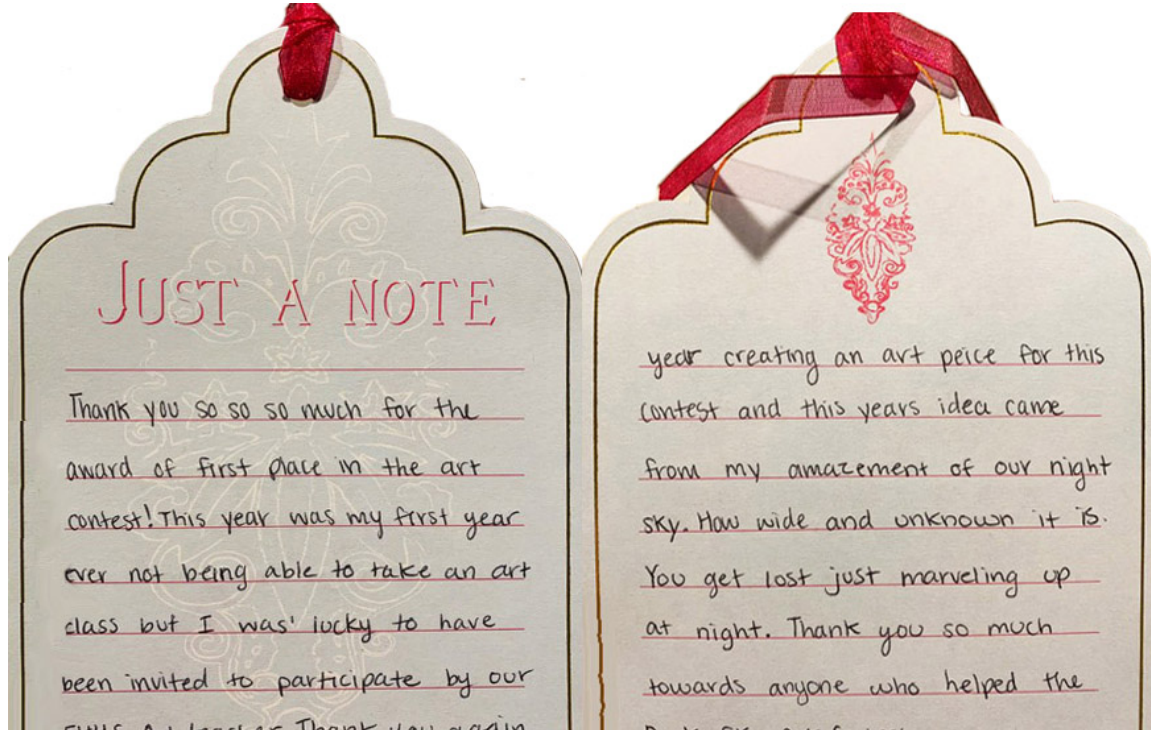 JUST A NOTE
Thank you so so so much for the
award of first place in the art
contest! This year was my first year
ever not being able to take an art
class but I was' lucky to have
been invited to participate by our
Thank you again
year creating an art peice for this
contest and this years idea came
from my amazement of our night
sky. How wide and unknown it is.
You get lost just marveling up
at night. Thank you so much
towards anyone who helped the